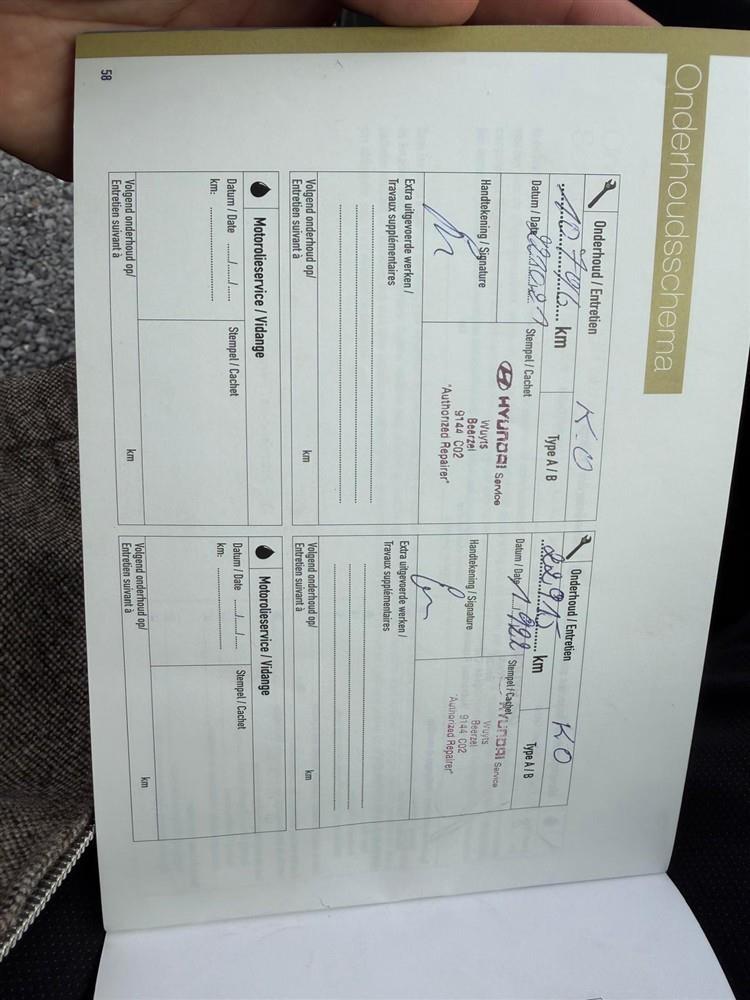 Onderhoudsschema
Onderhoud / Entretien
K.O
km
Type A / B
Datum / Date
Stempel / Cachet
HYUNDAI Service
Wuyts
Beerzel
9144 C02
"Authorized Repairer"
Handtekening / Signature
Extra uitgevoerde werken /
Travaux supplémentaires
Volgend onderhoud op/
Entretien suivant à
km
Motorolieservice / Vidange
Datum / Date ....../....../......
Stempel / Cachet
km: ........................
Volgend onderhoud op/
Entretien suivant à
km
Onderhoud / Entretien
KO
22.915 km
Type A / B
Datum / Date
Stempel / Cachet
HYUNDAI Service
Wuyts
Beerzel
9144 C02
"Authorized Repairer"
Handtekening / Signature
Extra uitgevoerde werken /
Travaux supplémentaires
Volgend onderhoud op/
Entretien suivant à
km
Motorolieservice / Vidange
Datum / Date ....../....../......
Stempel / Cachet
km: ........................
Volgend onderhoud op/
Entretien suivant à
km
58